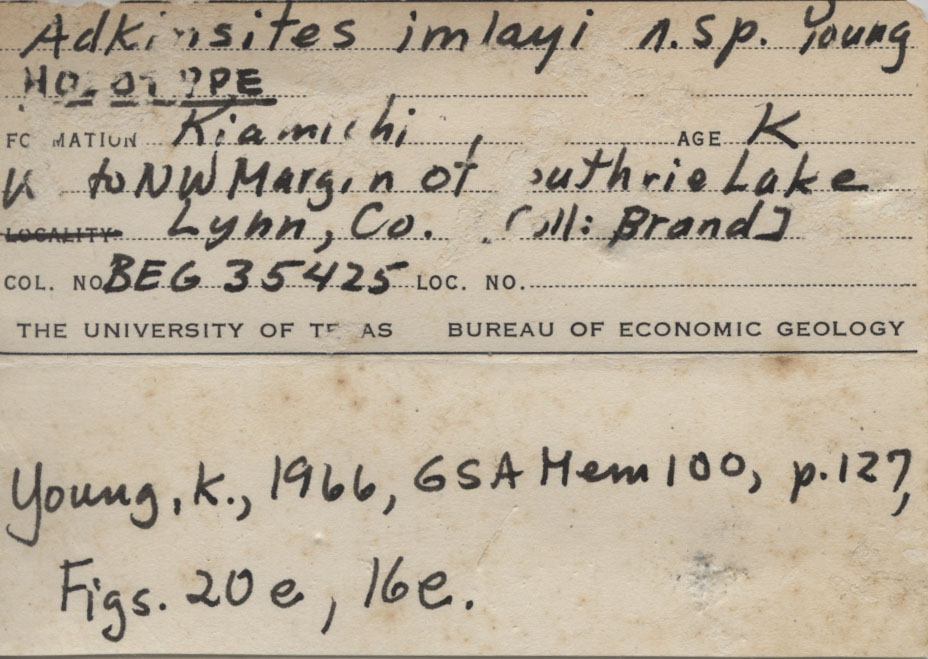 Adkinsites imlayi n.sp. Young
HOLOTYPE
FORMATION Kiamichi, AGE K
to NW Margin of Guthrie Lake
LOCALITY Lynn, Co. [Coll: Brand]
COL. NO. BEG 35425 LOC. NO.
THE UNIVERSITY OF TEXAS BUREAU OF ECONOMIC GEOLOGY
Young, K., 1966, GSA Mem 100, p.127,
Figs. 20e, 16e.